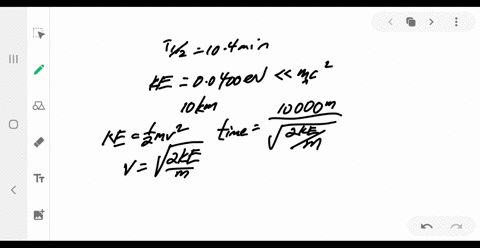 T1/2 = 10.4 min
KE = 0.0400 eV << mₙc²
10 km
KE = ½mv²
v = √(2KE/m)
time = 10000 m / √(2KE/m)
Tт